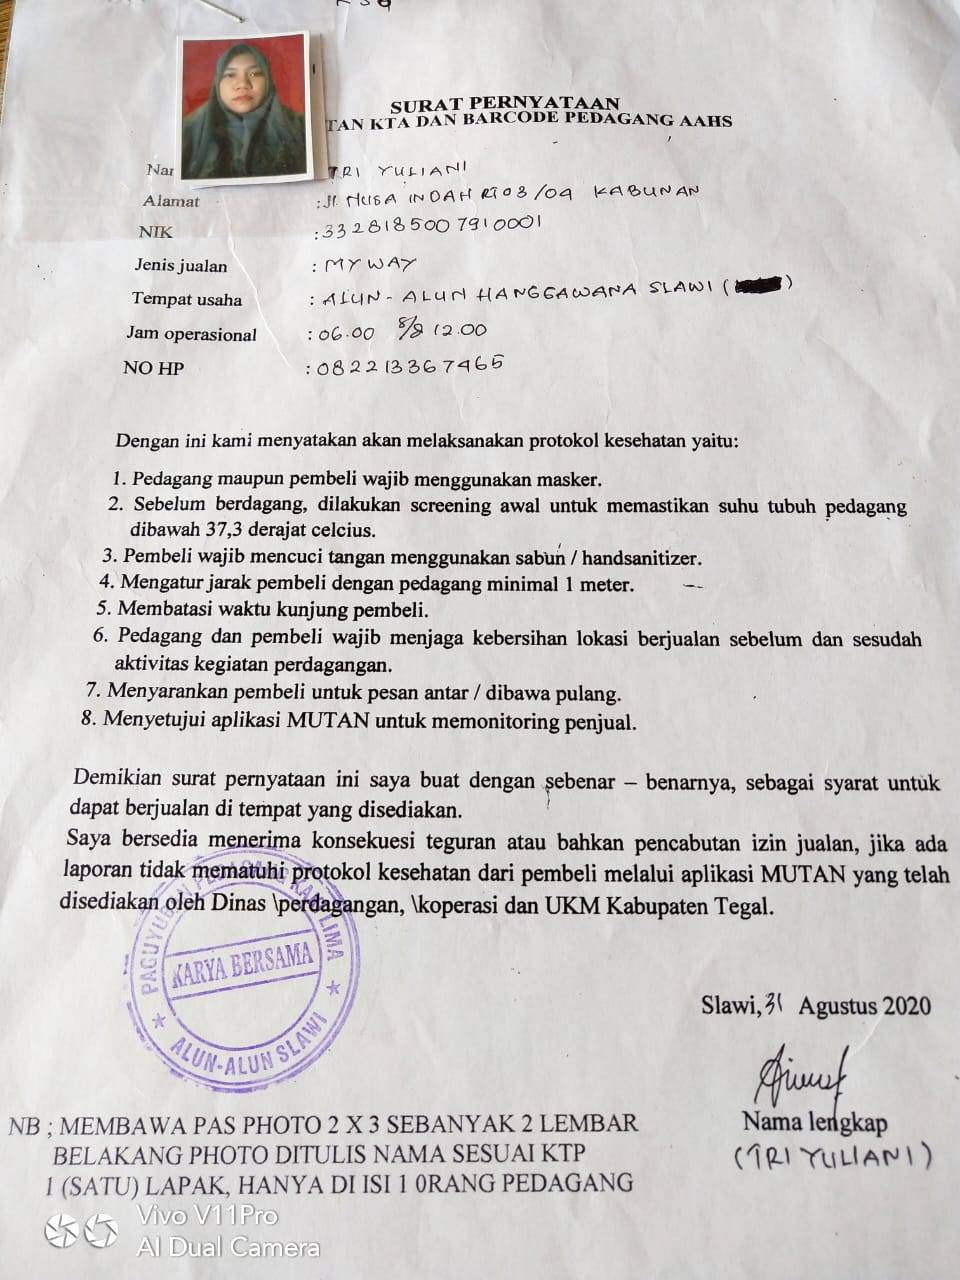 SURAT PERNYATAAN
TAN KTA DAN BARCODE PEDAGANG AAHS
TRI YULIANI
Alamat : Jl. NUSA INDAH RT 03/04 KABUNAN
NIK : 3328185007910001
Jenis jualan : MY WAY
Tempat usaha : ALUN-ALUN HANGGAWANA SLAWI ( )
Jam operasional : 06.00 s/d 12.00
NO HP : 082213367465
Dengan ini kami menyatakan akan melaksanakan protokol kesehatan yaitu:
1. Pedagang maupun pembeli wajib menggunakan masker.
2. Sebelum berdagang, dilakukan screening awal untuk memastikan suhu tubuh pedagang
dibawah 37,3 derajat celcius.
3. Pembeli wajib mencuci tangan menggunakan sabun / handsanitizer.
4. Mengatur jarak pembeli dengan pedagang minimal 1 meter.
5. Membatasi waktu kunjung pembeli.
6. Pedagang dan pembeli wajib menjaga kebersihan lokasi berjualan sebelum dan sesudah
aktivitas kegiatan perdagangan.
7. Menyarankan pembeli untuk pesan antar / dibawa pulang.
8. Menyetujui aplikasi MUTAN untuk memonitoring penjual.
Demikian surat pernyataan ini saya buat dengan sebenar – benarnya, sebagai syarat untuk
dapat berjualan di tempat yang disediakan.
Saya bersedia menerima konsekuesi teguran atau bahkan pencabutan izin jualan, jika ada
laporan tidak mematuhi protokol kesehatan dari pembeli melalui aplikasi MUTAN yang telah
disediakan oleh Dinas \perdagangan, \koperasi dan UKM Kabupaten Tegal.
PAGUYUBAN PEDAGANG KAKI LIMA
KARYA BERSAMA
ALUN-ALUN SLAWI
Slawi, 31 Agustus 2020
Nama lengkap
(TRI YULIANI)
NB ; MEMBAWA PAS PHOTO 2 X 3 SEBANYAK 2 LEMBAR
BELAKANG PHOTO DITULIS NAMA SESUAI KTP
1 (SATU) LAPAK, HANYA DI ISI 1 0RANG PEDAGANG
Vivo V11Pro
AI Dual Camera